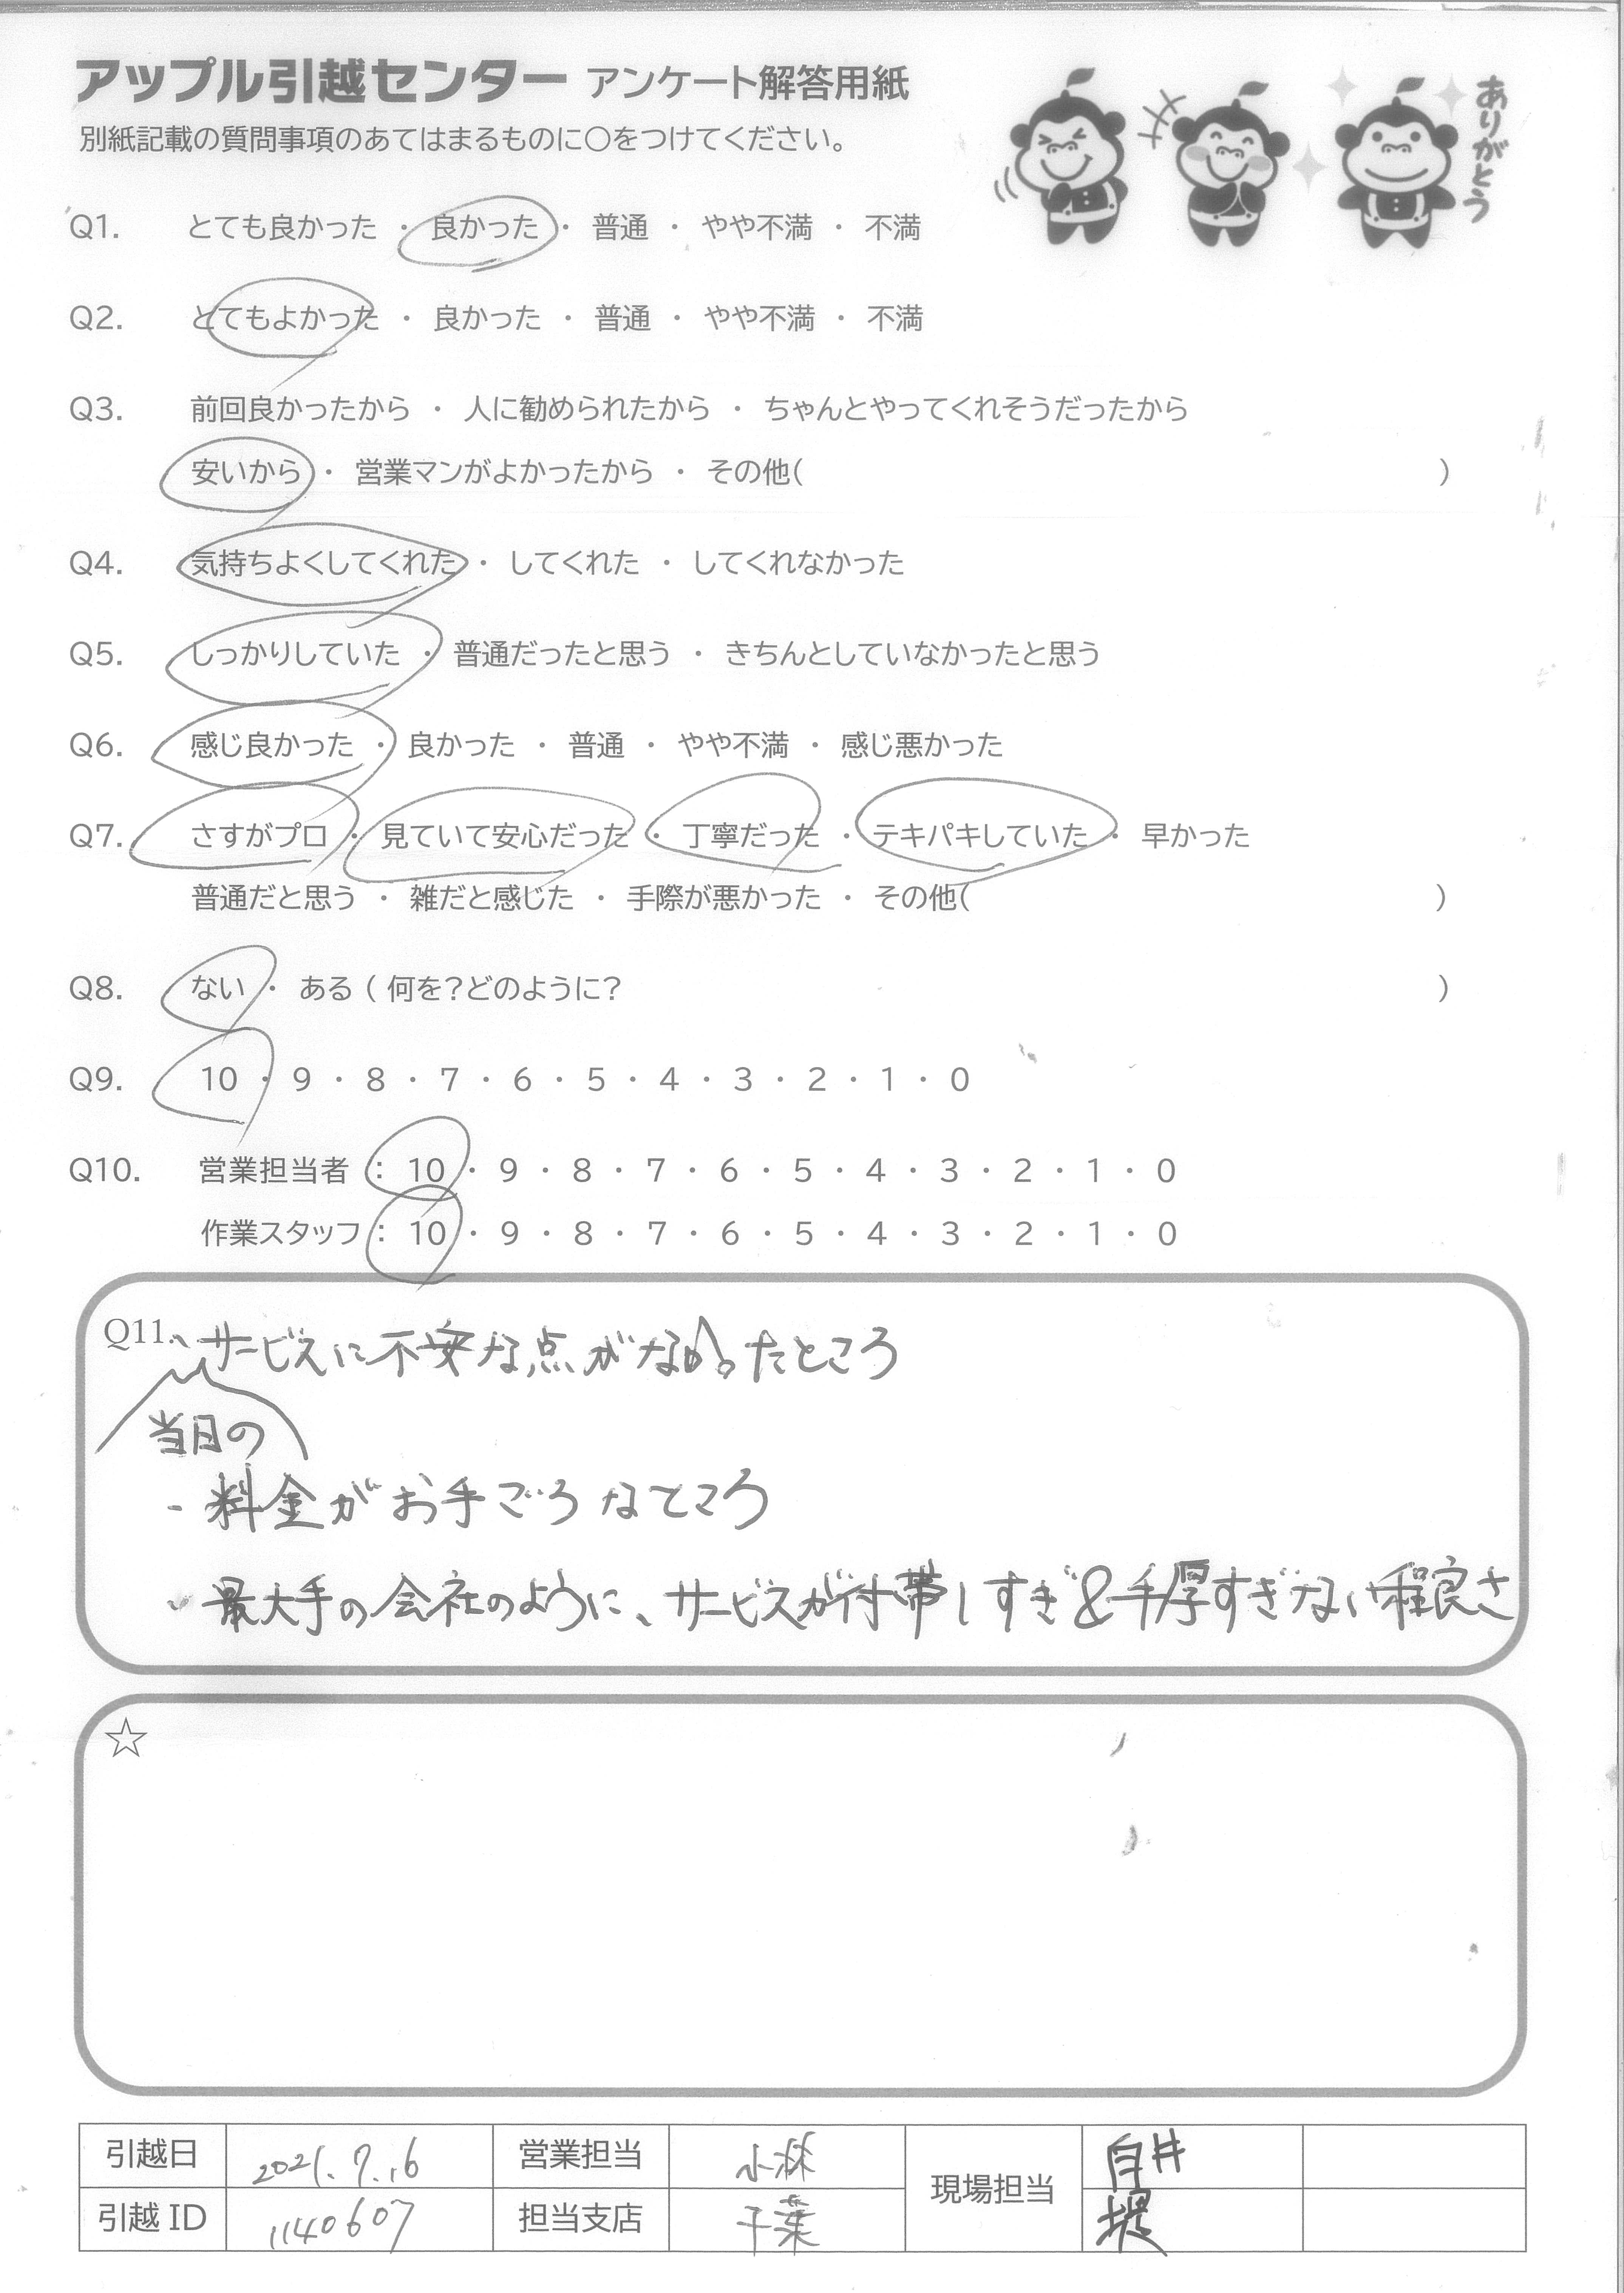 アップル引越センター アンケート解答用紙
別紙記載の質問事項のあてはまるものに〇をつけてください。
ありがとう
Q1. とても良かった ・ 良かった ・ 普通 ・ やや不満 ・ 不満
Q2. とてもよかった ・ 良かった ・ 普通 ・ やや不満 ・ 不満
Q3. 前回良かったから ・ 人に勧められたから ・ ちゃんとやってくれそうだったから
安いから ・ 営業マンがよかったから ・ その他( )
Q4. 気持ちよくしてくれた ・ してくれた ・ してくれなかった
Q5. しっかりしていた ・ 普通だったと思う ・ きちんとしていなかったと思う
Q6. 感じ良かった ・ 良かった ・ 普通 ・ やや不満 ・ 感じ悪かった
Q7. さすがプロ ・ 見ていて安心だった ・ 丁寧だった ・ テキパキしていた ・ 早かった
普通だと思う ・ 雑だと感じた ・ 手際が悪かった ・ その他( )
Q8. ない ・ ある ( 何を?どのように? )
Q9. 10 ・ 9 ・ 8 ・ 7 ・ 6 ・ 5 ・ 4 ・ 3 ・ 2 ・ 1 ・ 0
Q10. 営業担当者 : 10 ・ 9 ・ 8 ・ 7 ・ 6 ・ 5 ・ 4 ・ 3 ・ 2 ・ 1 ・ 0
作業スタッフ : 10 ・ 9 ・ 8 ・ 7 ・ 6 ・ 5 ・ 4 ・ 3 ・ 2 ・ 1 ・ 0
Q11. ・サービスに不安な点がなかったところ
当日の
・料金がお手ごろなところ
・最大手の会社のように、サービスが付帯しすぎ&手厚すぎない程良さ
☆
引越日 2021.7.16 営業担当 小林 現場担当 白井
引越 ID 1140607 担当支店 千葉 堤